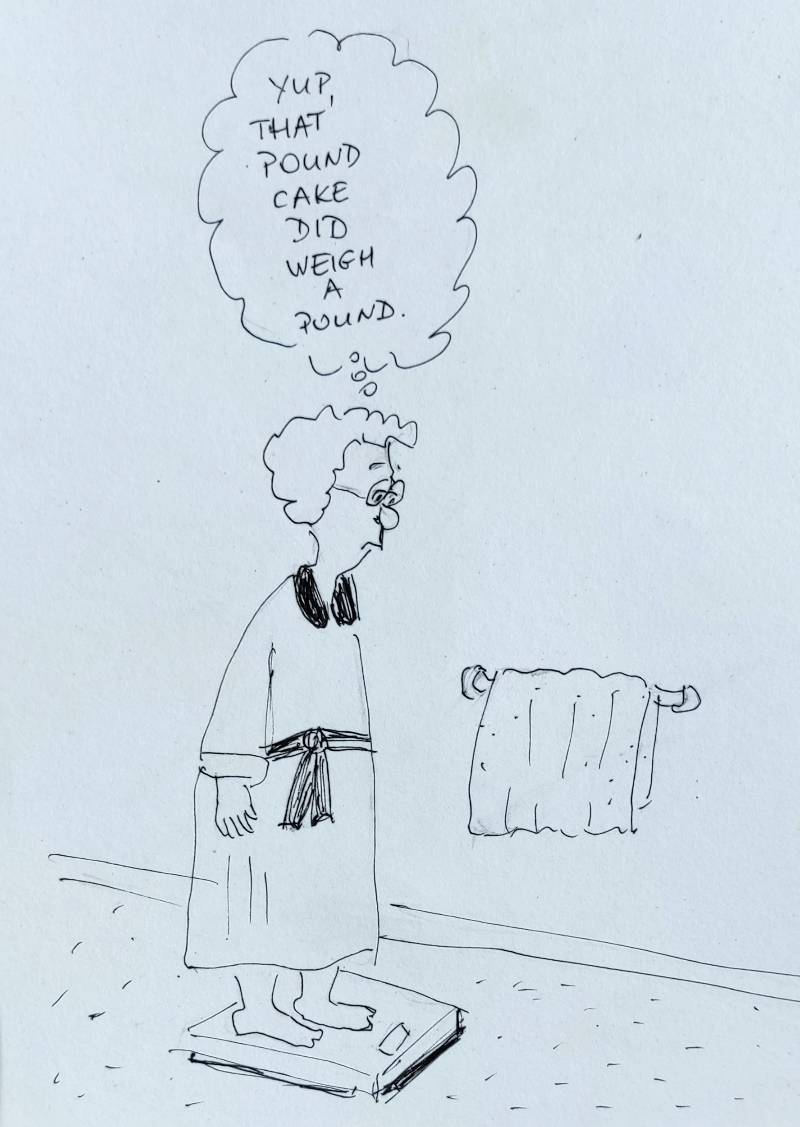 YUP,
THAT
POUND
CAKE
DID
WEIGH
A
POUND.